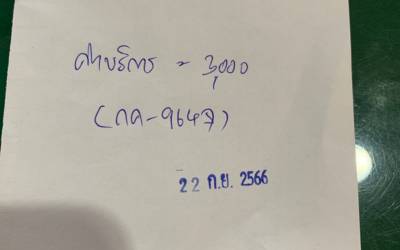 ค่าบริการ = 3,000
(กค-9647)
22 ก.ย. 2566